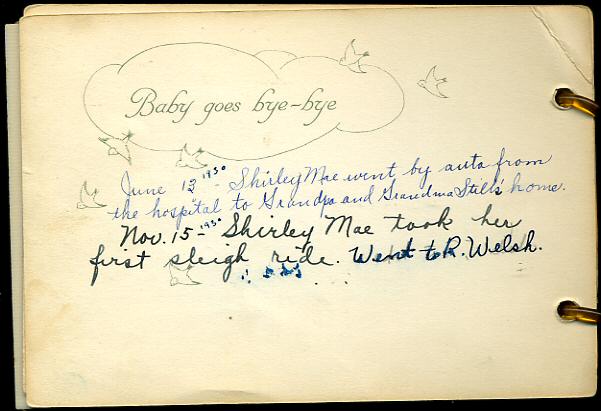 Baby goes bye-bye
June 12 1930 - Shirley Mae went by auto from
the hospital to Grandpa and Grandma Still's home.
Nov. 15 - 1930 Shirley Mae took her
first sleigh ride. Went to R. Welsh.